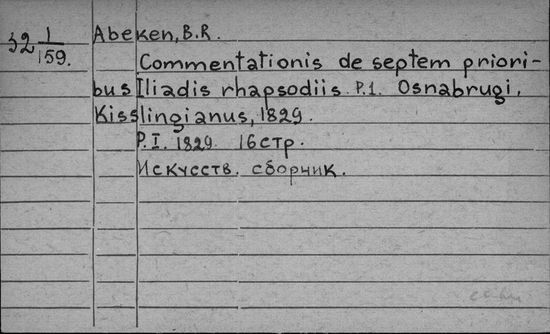 32 1/159. Abeken, B.R.
Commentationis de septem priori-
bus Iliadis rhapsodiis P.1. Osnabrugi,
Kisslingianus, 1829.
P.I. 1829 16стр.
Искусств. сборник.